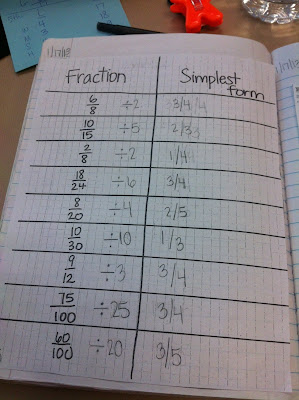 1/17/12
Fraction Simplest form
6/8 ÷2 3/4
10/15 ÷5 2/3
2/8 ÷2 1/4
18/24 ÷6 3/4
8/20 ÷4 2/5
10/30 ÷10 1/3
9/12 ÷3 3/4
75/100 ÷25 3/4
60/100 ÷20 3/5